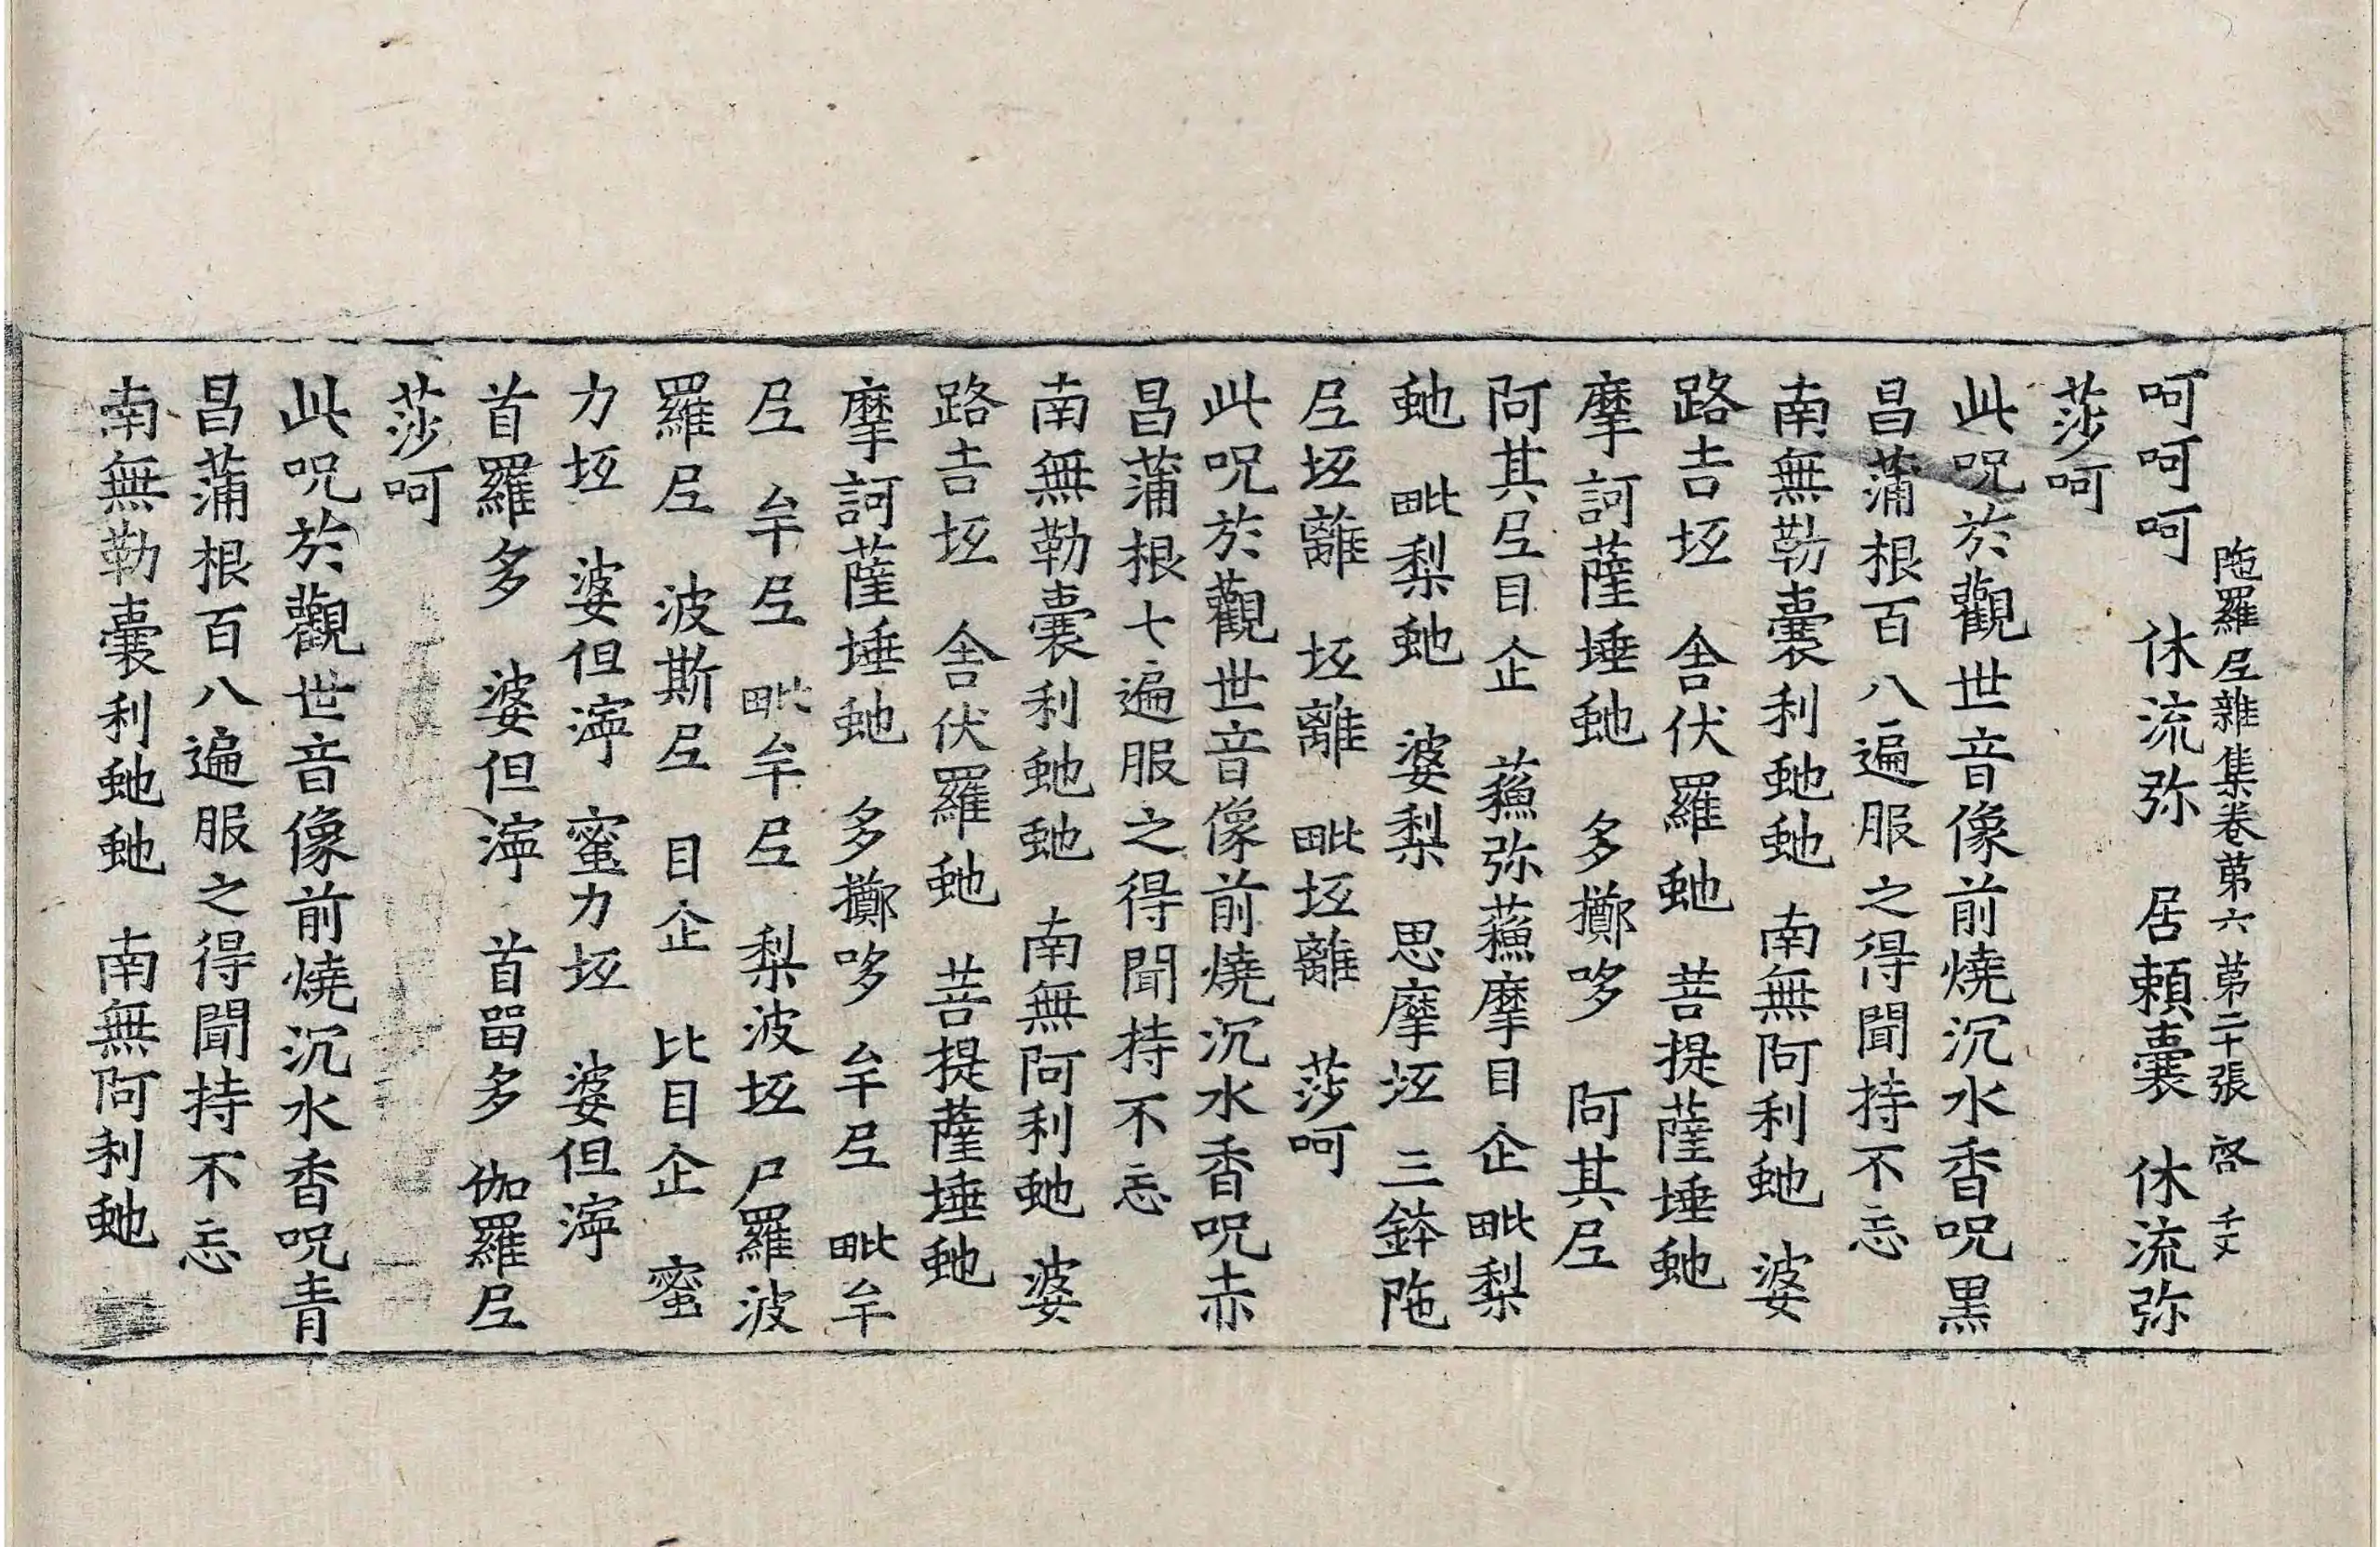 陁羅𡰱雜集卷第六 第二十張 啓 千文
呵呵呵 休流弥 居賴囊 休流弥
莎呵
此呪於觀世音像前燒沉水香呪黒
昌蒲根百八遍服之得聞持不忘
南無勒囊利虵虵 南無阿利虵 婆
路吉坘 舍伏羅虵 菩提薩埵虵
摩訶薩埵虵 多擲哆 阿其𡰱
阿其𡰱目企 蘓弥蘓摩目企 毗梨
虵 毗梨虵 婆梨 思摩坘 三鉢陁
𡰱坘離 坘離 毗坘離 莎呵
此呪於觀世音像前燒沉水香呪赤
昌蒲根七遍服之得聞持不忘
南無勒囊利虵虵 南無阿利虵 婆
路吉坘 舍伏羅虵 菩提薩埵虵
摩訶薩埵虵 多擲哆 牟𡰱 毗牟
𡰱 牟𡰱 毗牟𡰱 梨波坘 尸羅波
羅𡰱 波斯𡰱 目企 比目企 蜜
力坘 婆但濘 蜜力坘 婆但濘
首羅多 婆但濘 首留多 伽羅𡰱
莎呵
此呪於觀世音像前燒沉水香呪青
昌蒲根百八遍服之得聞持不忘
南無勒囊利虵虵 南無阿利虵